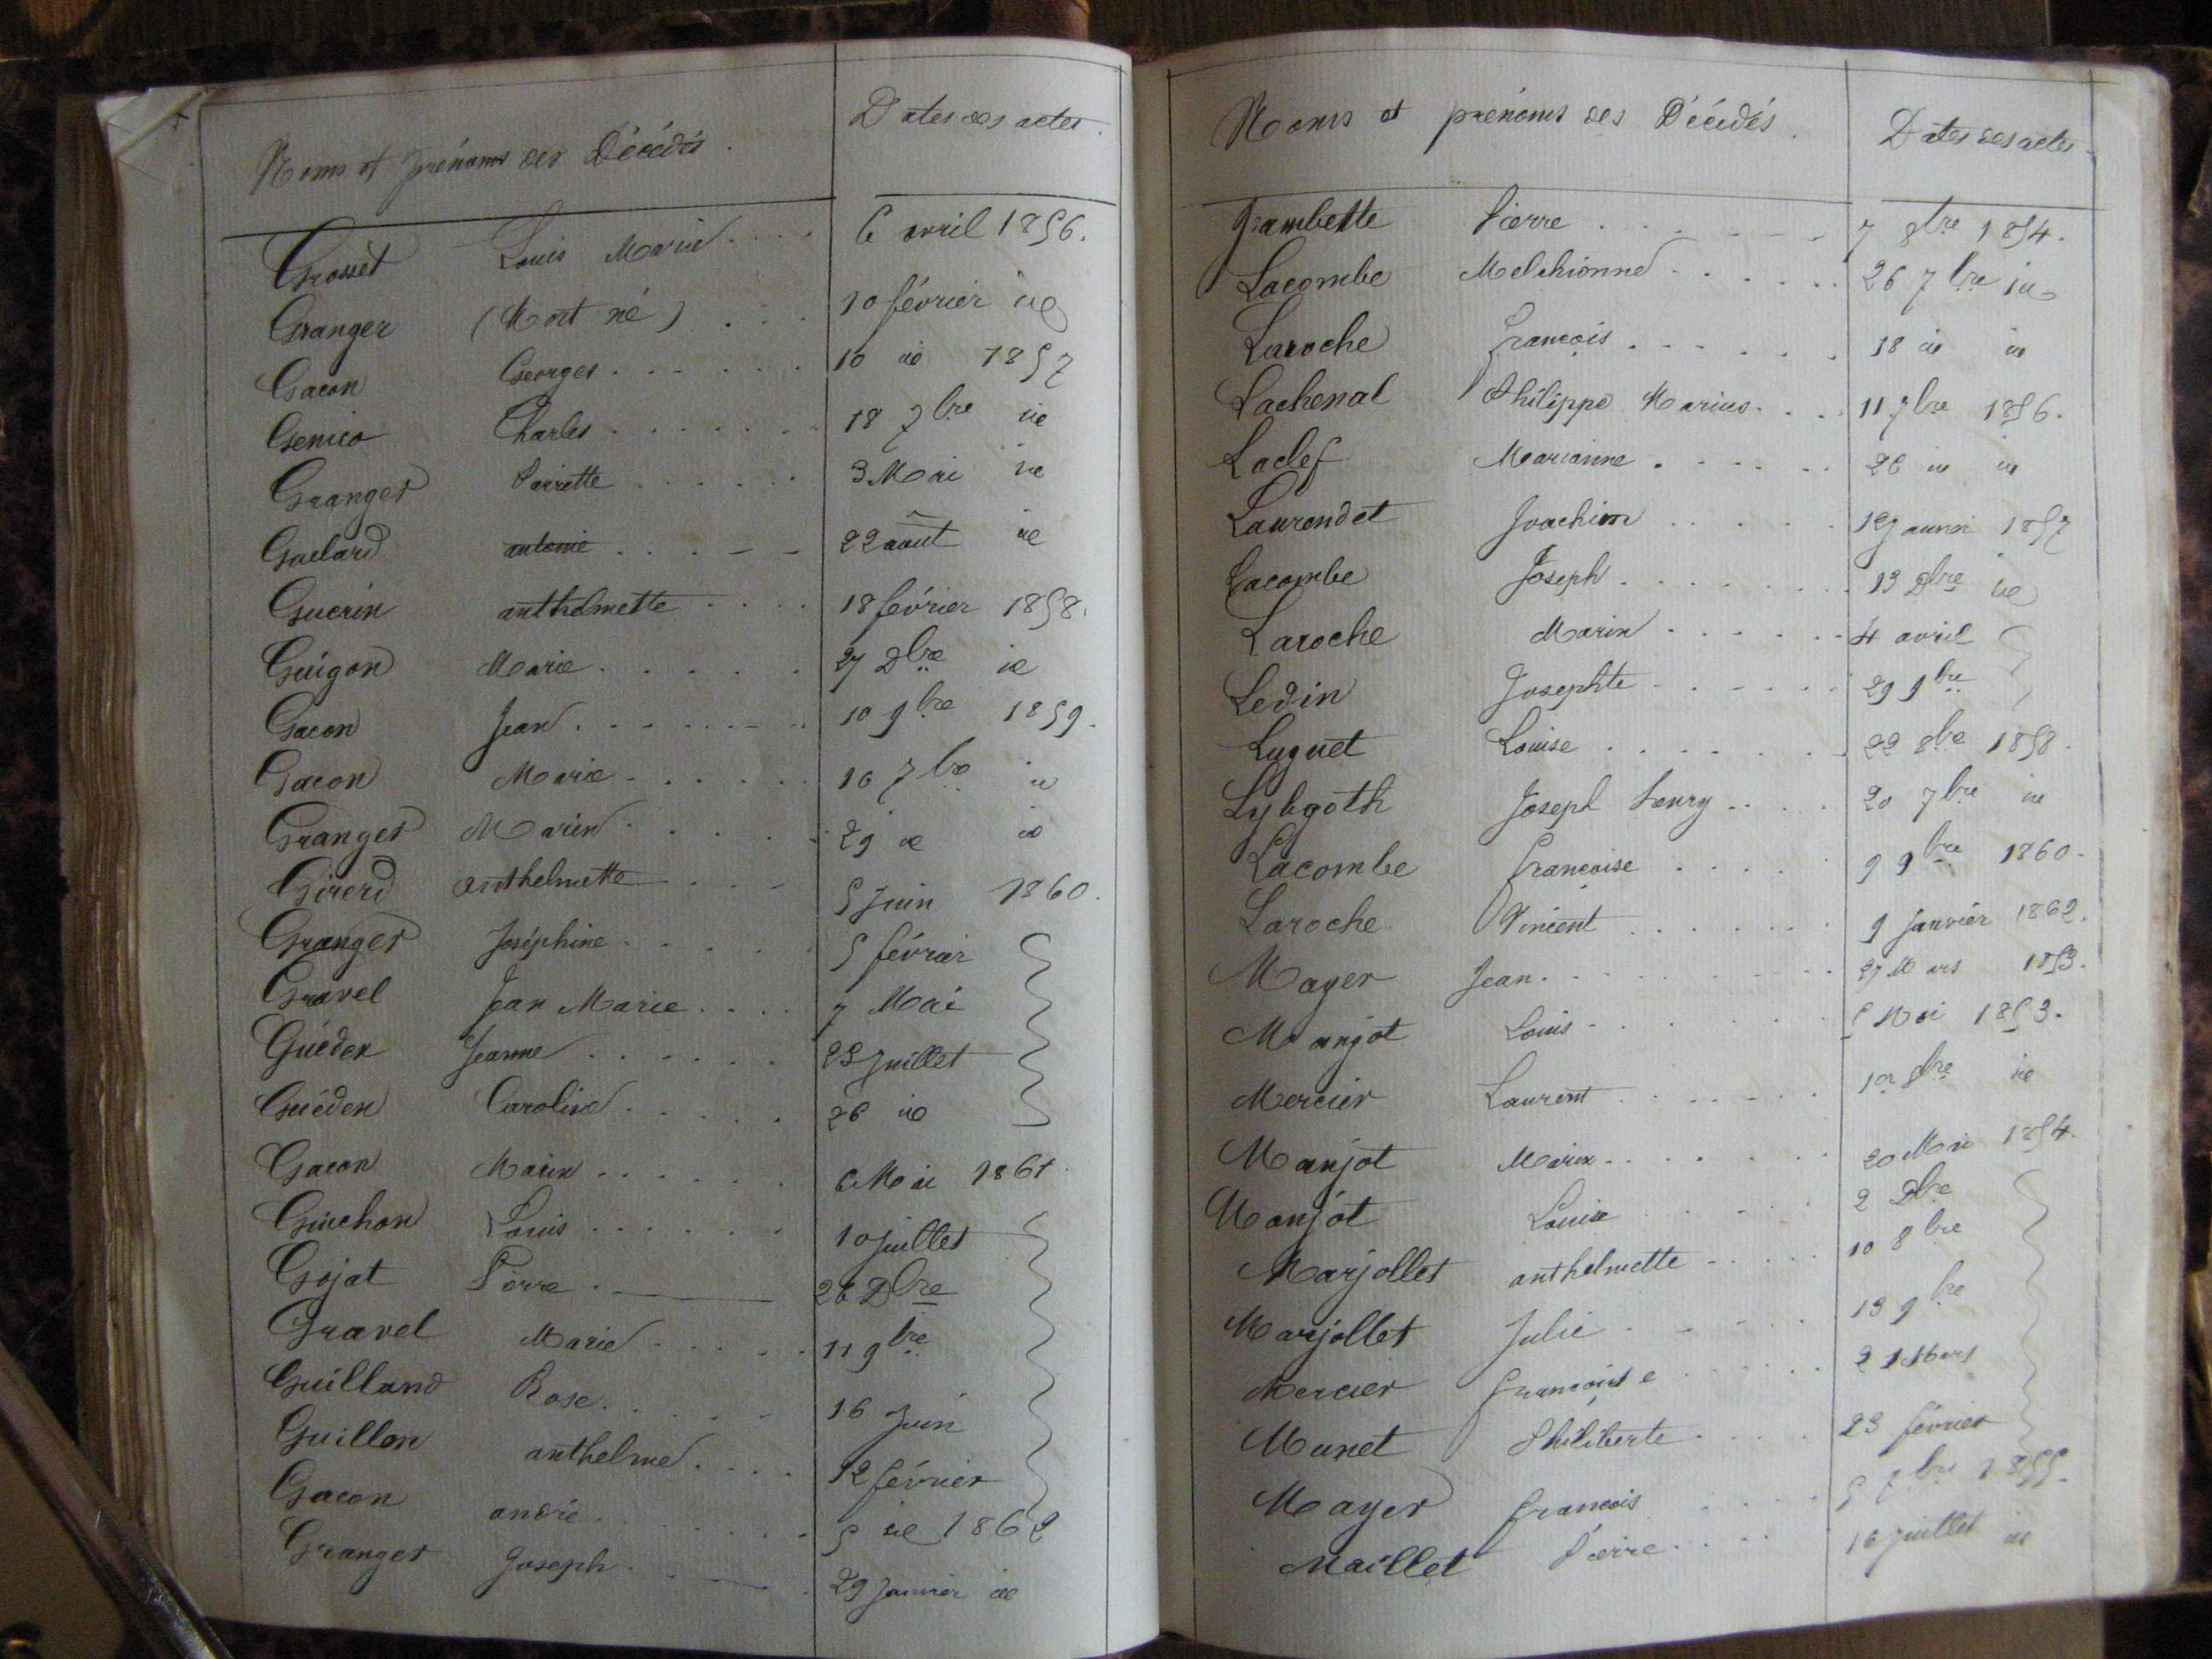 Noms et prénoms des Décédés. Dates des actes.
Grosset Louis Marie 6 avril 1856.
Granger (Mort né) 10 février id
Gacon Georges 10 id 1857
Genico Charles 18 7bre id
Granger Pierrette 3 Mai id
Guelard antonie 22 aout id
Guerin anthelmette 18 février 1858.
Guigon Marie 27 Dbre id
Gacon Jean 10 9bre 1859.
Gacon Marie 16 7bre id
Granger Marin 29 id id
Girerd anthelmette 5 Juin 1860.
Granger Joséphine 5 février
Gravel Jean Marie 7 Mai
Guéden Jeanne 23 Juillet
Guéden Caroline 26 id
Gacon Marin 6 Mai 1861.
Guichon Louis 10 juillet
Gojat Pierre 26 Dbre
Gravel Marie 11 9bre
Guilland Rose 16 Juin
Guillon anthelme 12 février
Gacon andré 5 id 1862
Granger Joseph 29 Janvier id
Noms et prénoms des Décédés. Dates des actes.
Jambette Pierre 7 8bre 1854.
Lacombe Melchionne 26 7bre id
Laroche François 18 id id
Lachenal Philippe Marius 11 7bre 1856.
Laclef Marianne 26 id id
Laurendet Joachim 1857
Lacombe Joseph 13 Dbre id
Laroche Marin 4 avril
Ledin Josephte 29 9bre
Luguet Louise 22 8bre 1858.
Lybgoth Joseph henry 20 7bre id
Lacombe françoise 9 9bre 1860.
Laroche Vincent 9 Janvier 1862.
Mayer Jean 27 Mars 1853.
Manjot Louis 5 Mai 1853.
Mercier Laurent 1er 8bre id
Manjot Marin 20 Mai 1854.
Manjot Louise 2 Dbre
Marjollet anthelmette 10 8bre
Marjollet Julie 13 9bre
Mercier françoise 21 Mars
Munet Philiberte 23 février
Mayer françois 5 7bre 1855.
Maillet Pierre 16 Juillet id